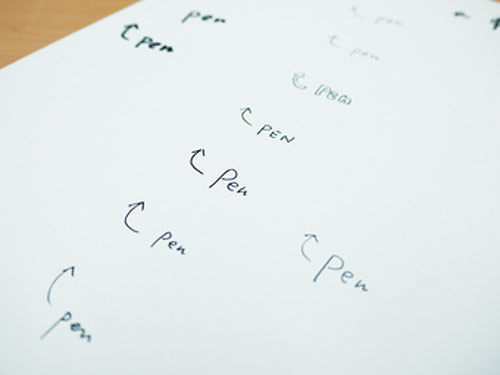 pen
pen
pen
pen
PEN
PEN
Pen
Pen
Pen
pen